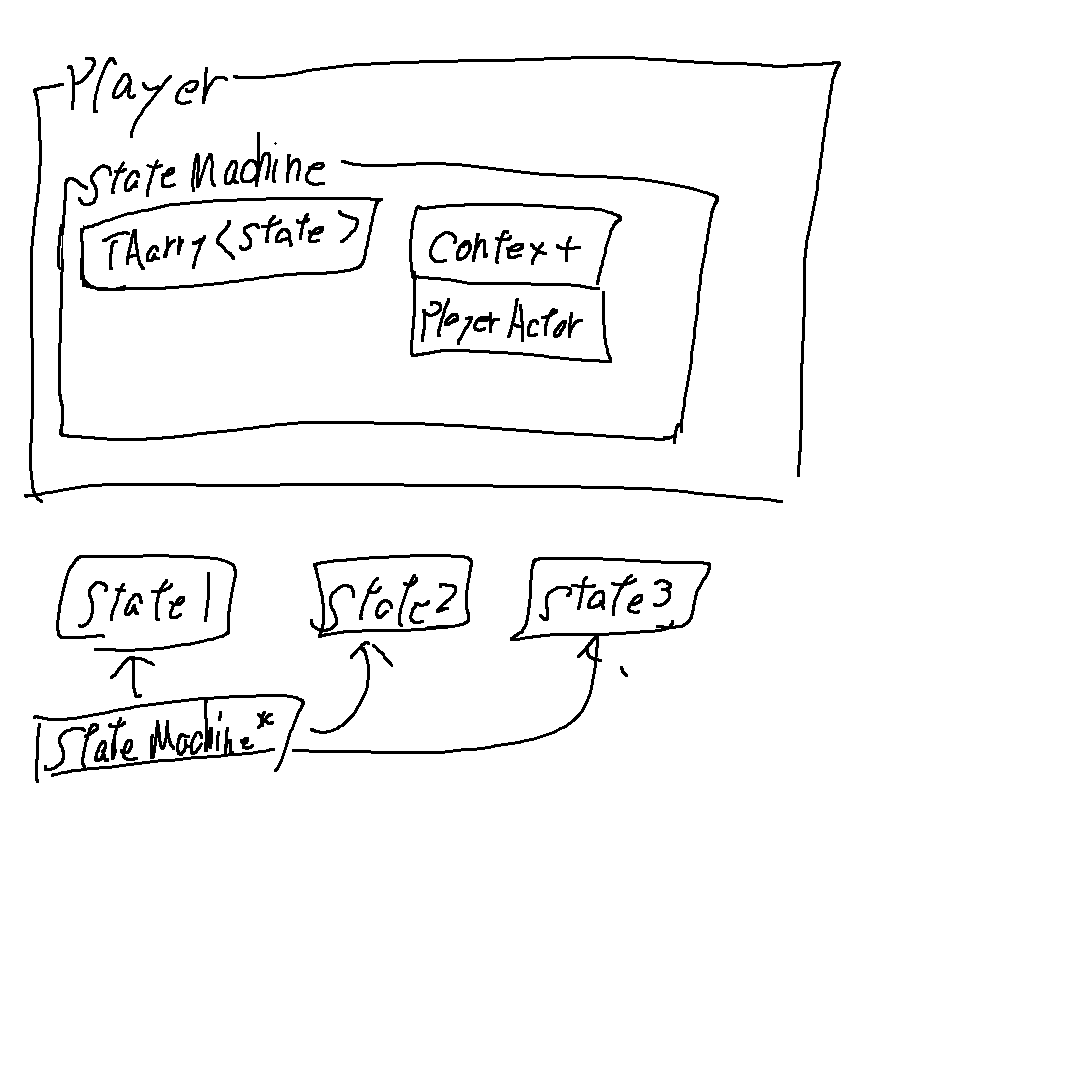 Player
State Machine
TAarry<State>
Context
Player Actor
State1
State2
State3
State Machine*